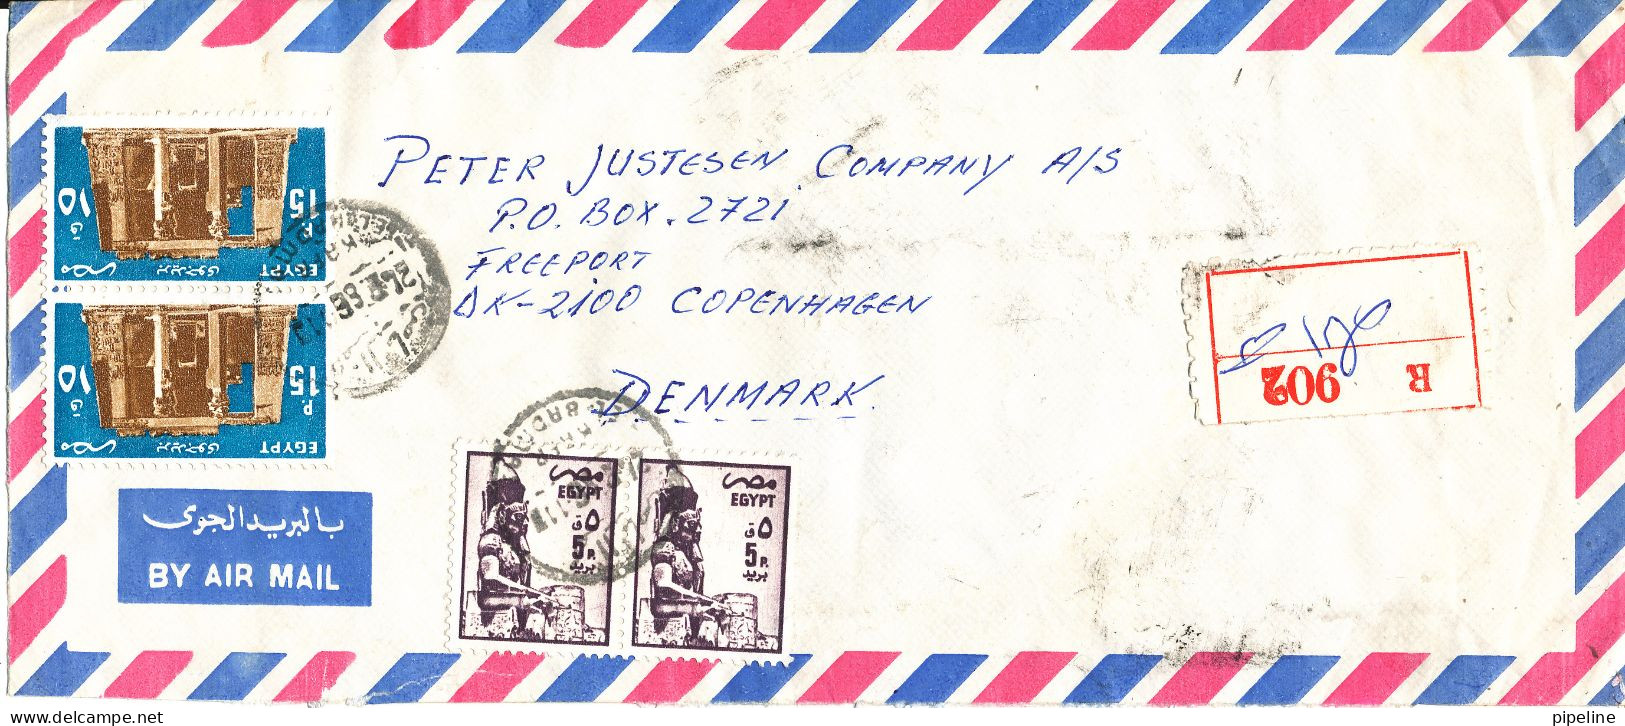 PETER JUSTESEN COMPANY A/S
P.O. BOX. 2721
FREEPORT
DK-2100 COPENHAGEN
DENMARK.
R
902
15
P.
١٥
ق
EGYPT
بريد جوى
مصر
15
P.
١٥
ق
EGYPT
بريد جوى
مصر
بالبريد الجوى
BY AIR MAIL
مصر
EGYPT
٥ ق
5 P.
بريد
مصر
EGYPT
٥ ق
5 P.
بريد
pipeline